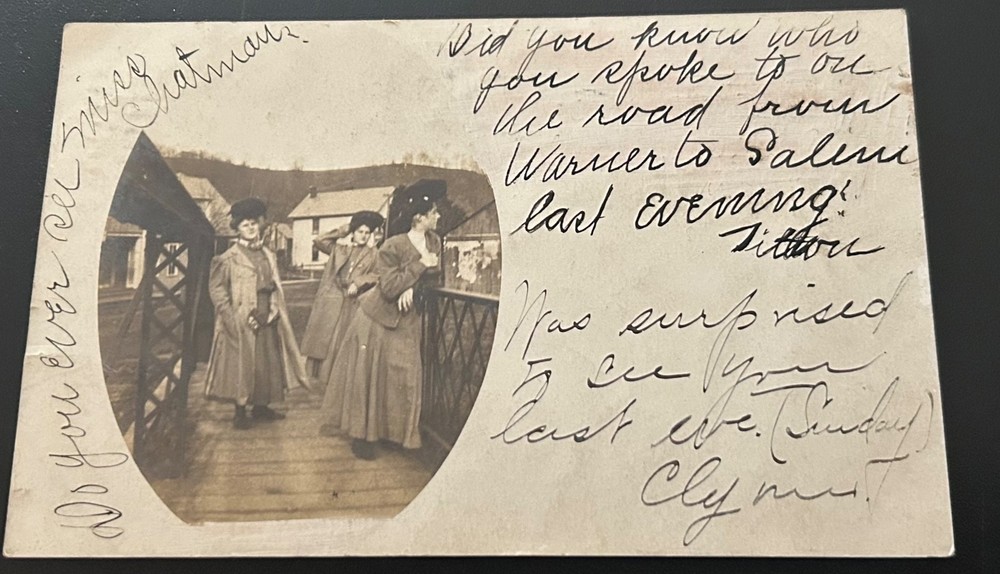 Do you ever see Miss
Chatman?
Did you know who
you spoke to on
the road from
Warner to Salem
last evening?
Was surprised
to see you
last eve. (Sunday)